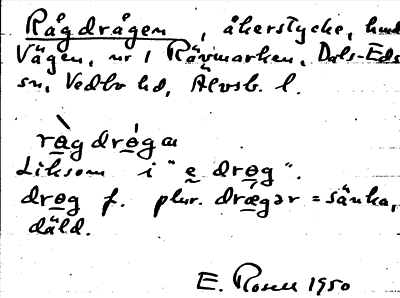 Rågdrågen, åkerstycke, hmd
Vågen, nr 1 Rävmarken, Dals-Eds
sn, Vedbo hd, Älvsb. l.
rò̱gdrǫ́gα
Liksom i "e̱ drǫg".
drǫg f. plur. dræ̱gər = sänka,
däld.
E. Rosell 1950